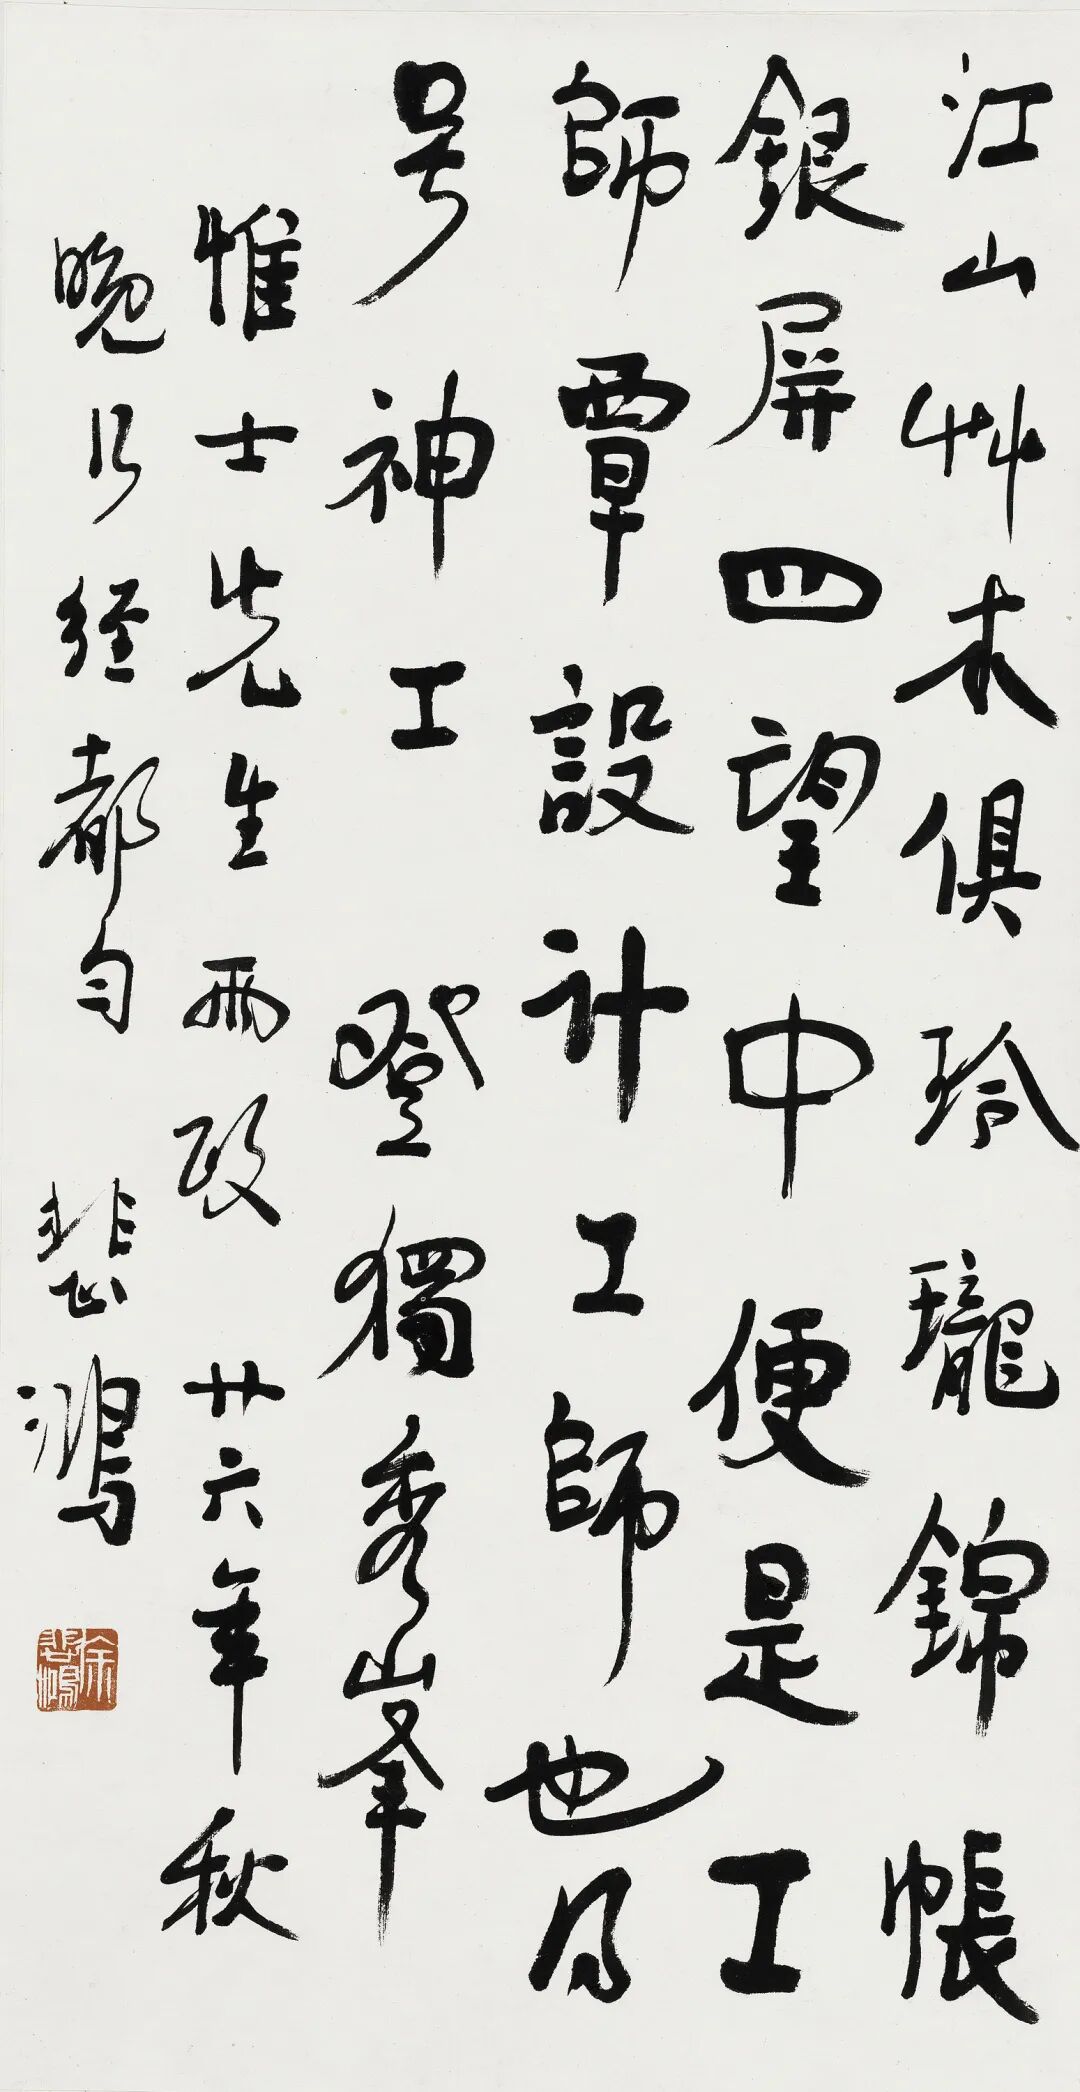 江山艸木俱玲瓏錦帳
銀屏四望中便是工
師覃設計工師也得
号神工 登獨秀峯
惟士先生兩政 廿六年秋
晚行經都匀 悲鴻
徐悲鴻